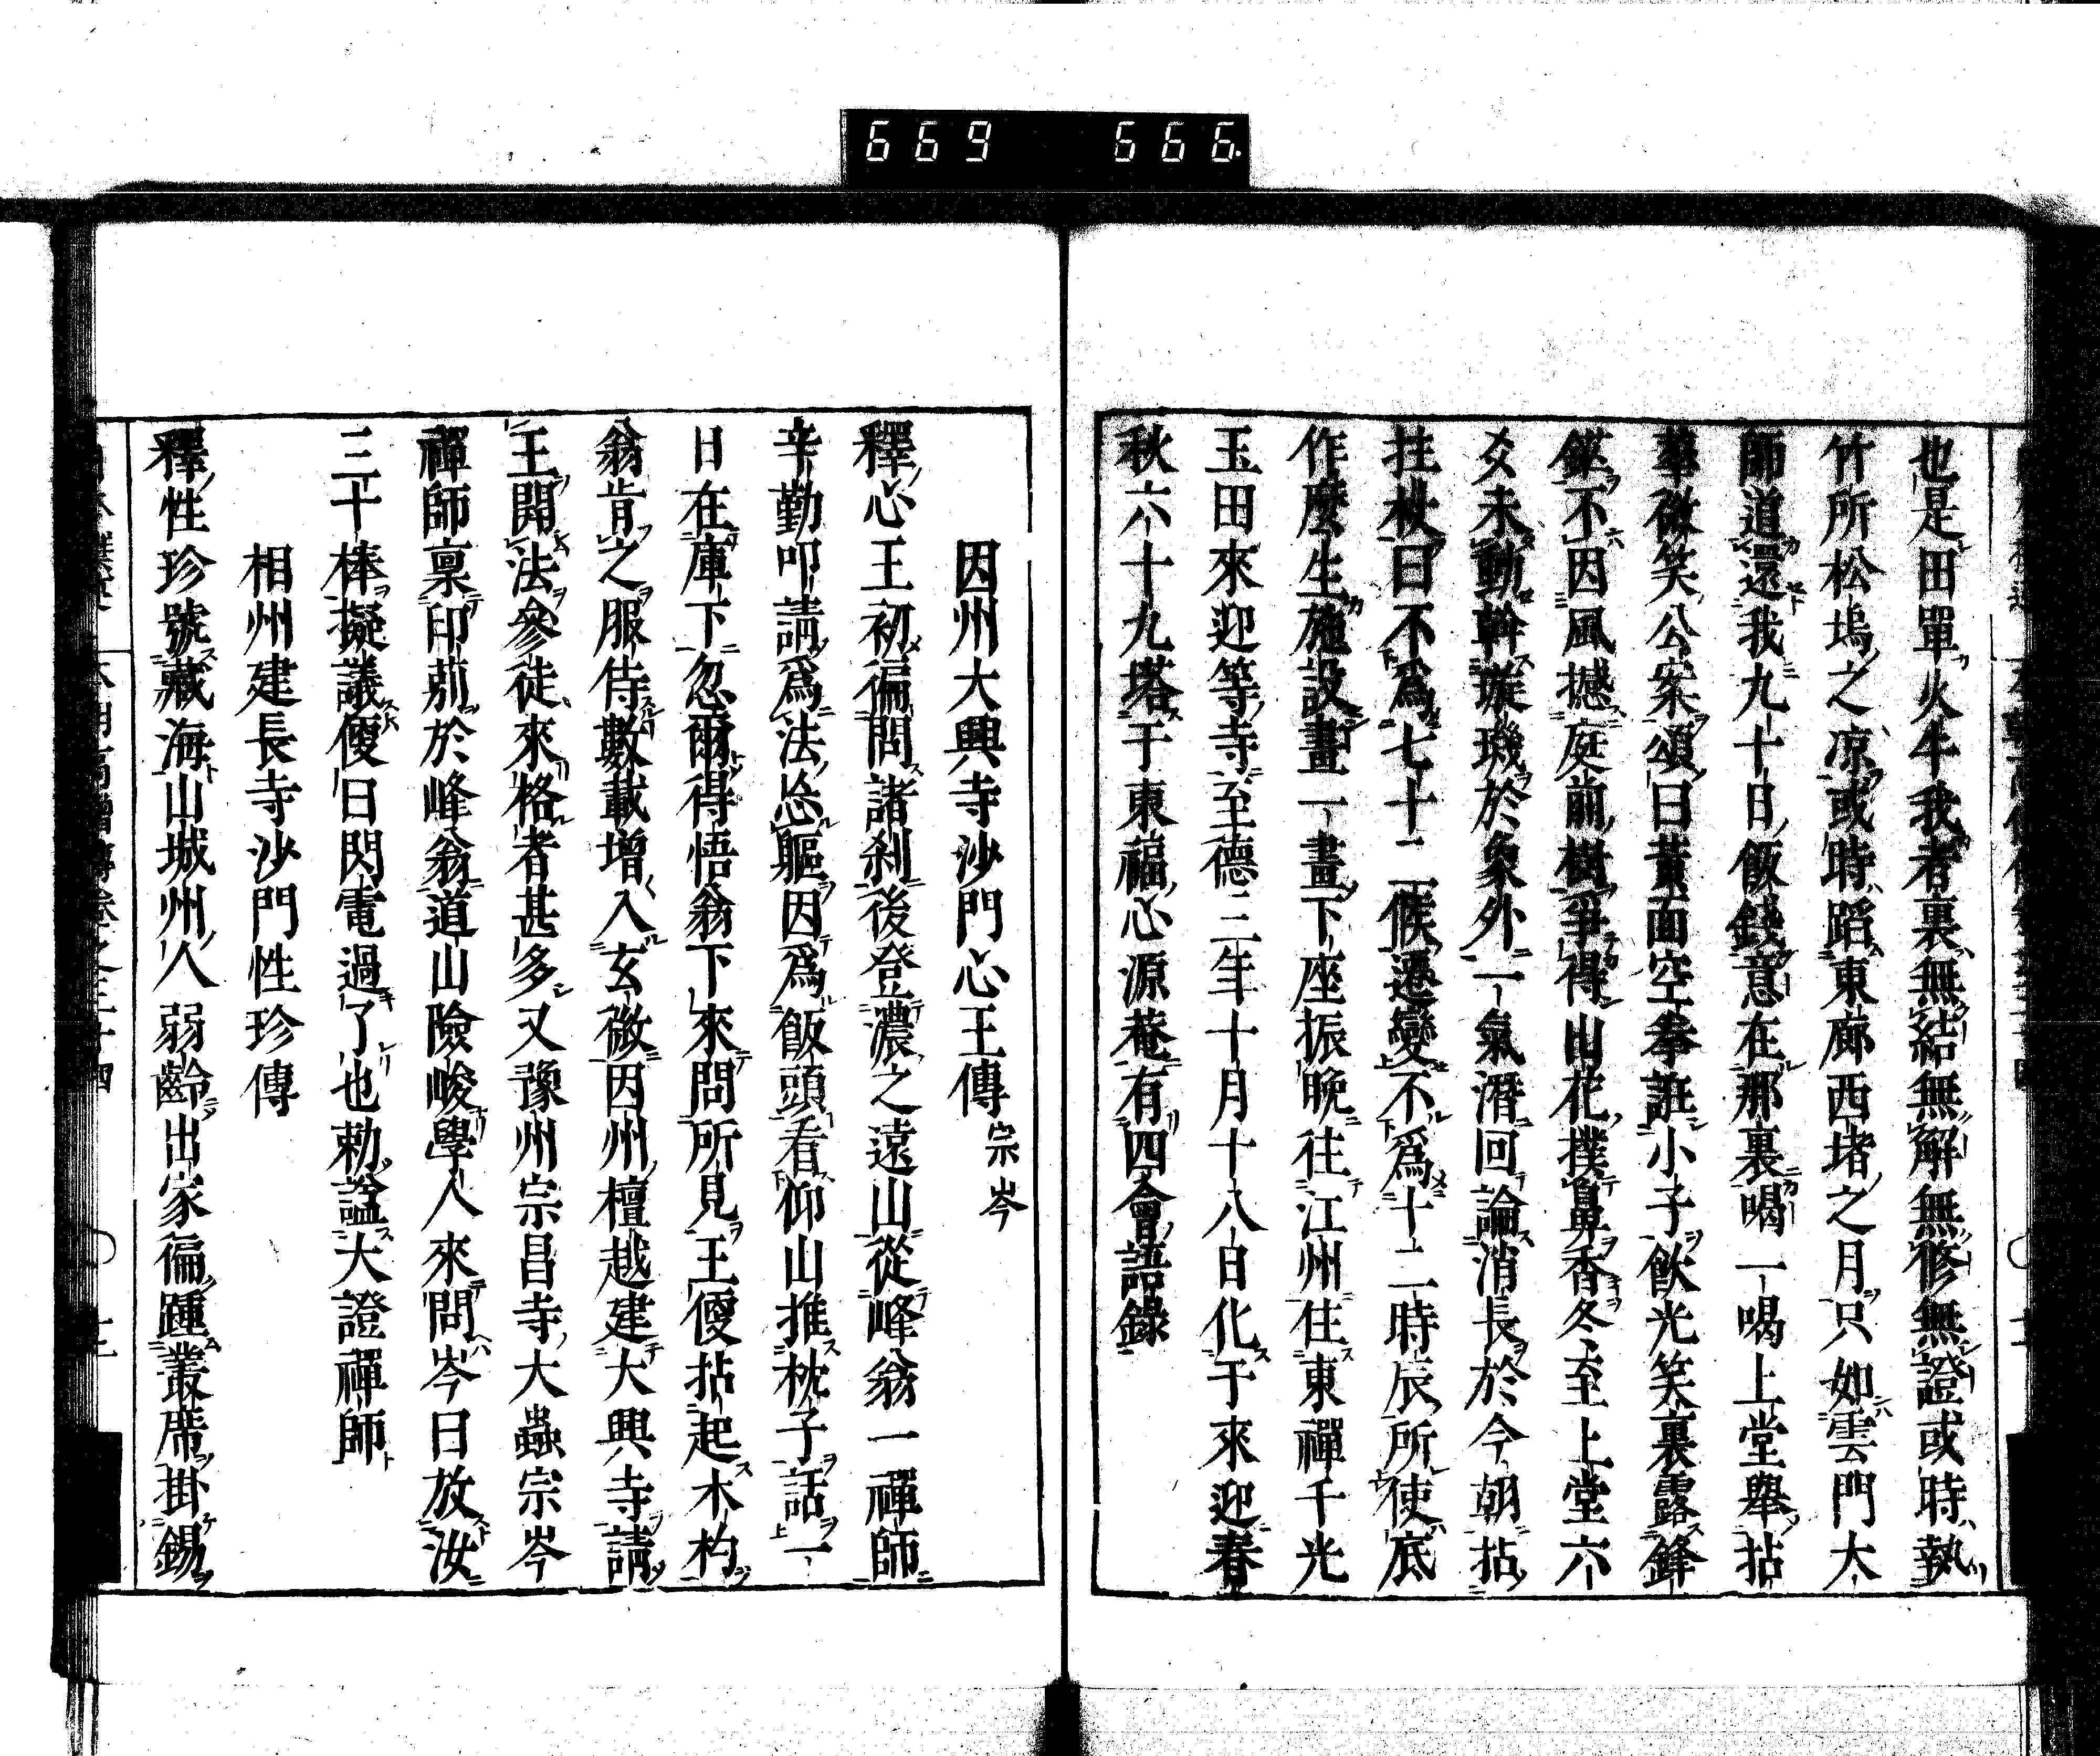 669 666
也是田單火牛我者裏無結無解無修無證或時執
竹所松塢之凉或時蹈東廊西堵之月只如雲門大
師道還我九十日飯錢意在那裏喝一喝上堂舉拈
華微笑公案頌曰黃面空拳誑小子飲光笑裏露鋒
鋩不因風撼庭前樹爭得山花撲鼻香冬至上堂六
爻未動斡璇璣於象外一氣潛回論消長於今朝拈
拄杖曰不爲七十二候遷變不爲十二時辰所使底
作麼生施設畫一畫下座振晚往江州住東禪千光
玉田來迎等寺至德三年十月十八日化于來迎春
秋六十九塔于東福心源菴有四會語錄
因州大興寺沙門心王傳宗岑
釋心王初徧問諸刹後登濃之遠山從峰翁一禪師
辛勤叩請爲法忘軀因爲飯頭看仰山推枕子話一
日在庫下忽爾得悟翁下來問所見王便拈起木杓
翁肯之服侍數載增入玄微因州檀越建大興寺請
王開法參徒來格者甚多又豫州宗昌寺大蟲宗岑
禪師禀印莂於峰翁道山險峻學人來問岑曰放汝
三十棒擬議便曰閃電過了也勅謚大證禪師
相州建長寺沙門性珍傳
釋性珍號藏海山城州人弱齡出家徧踵叢席掛錫